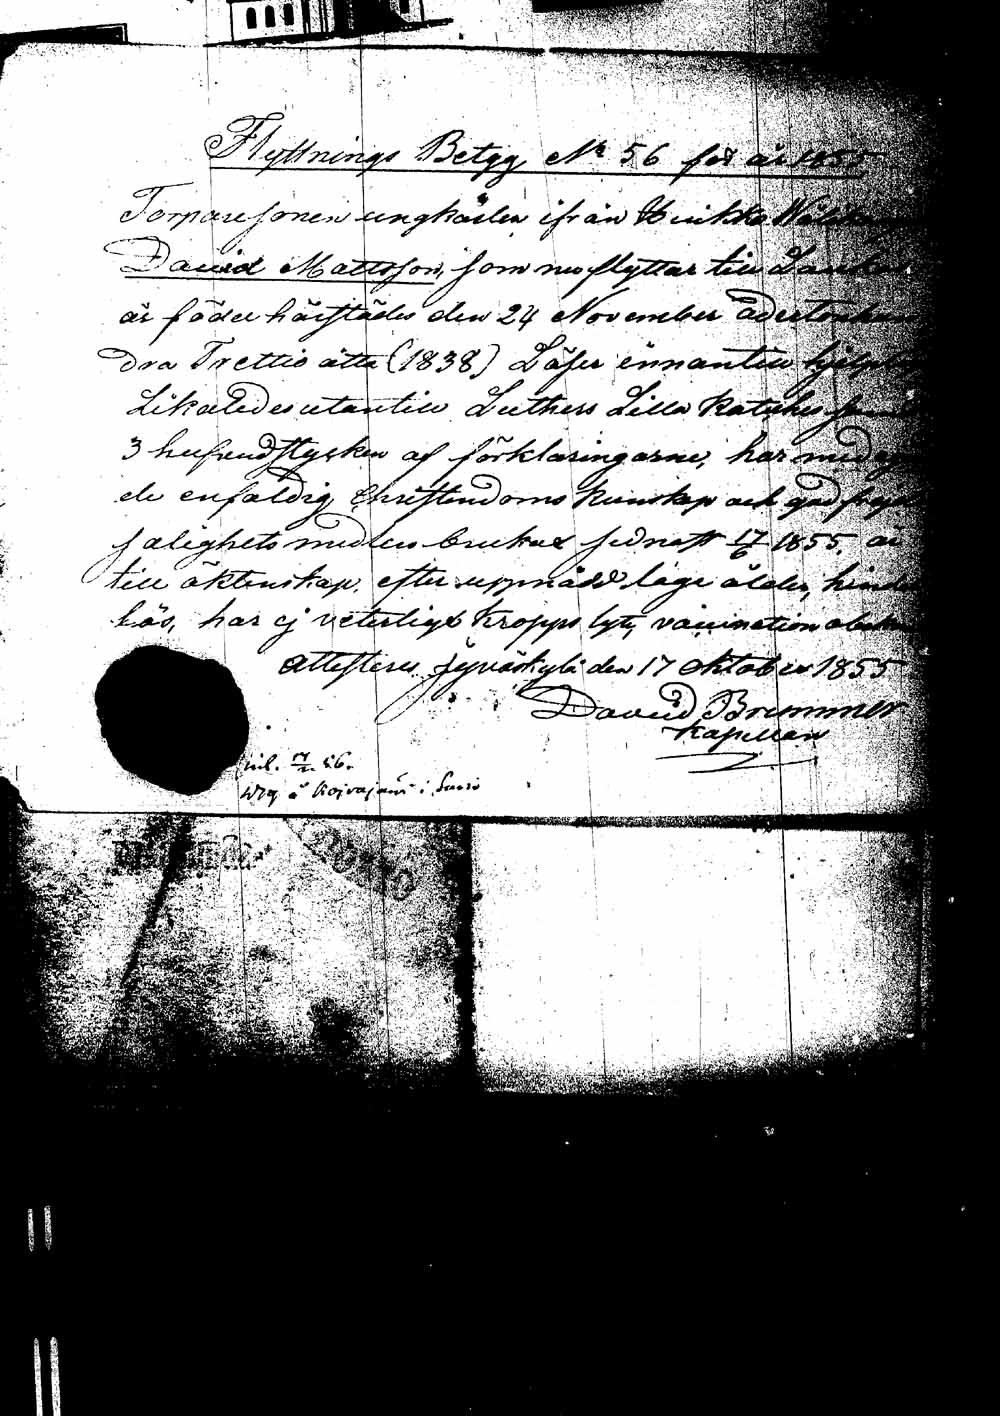 Flyttnings Betyg No 56 för år 1855
Torparesonen ungkarlen ifrån
David Mattsson, som nu flyttar till
är född härstädes den 24 November adertonhun
dra Trettio åtta (1838) Läser innantill
Likaledes utantill Luthers Lilla Katches
3 hufvudstycken af förklaringarne, har med
de enfaldig Christendoms kunskap och
salighets medlen brukat sednast 17/6 1855. är
till äktenskap, efter uppnådd laga ålder, hinder
lös, har ej veterligt kropps lyte, vaccination
Attesteras Jyväskylä den 17 Oktober 1855
David Brummer
Kapellan
inl. 56.
i